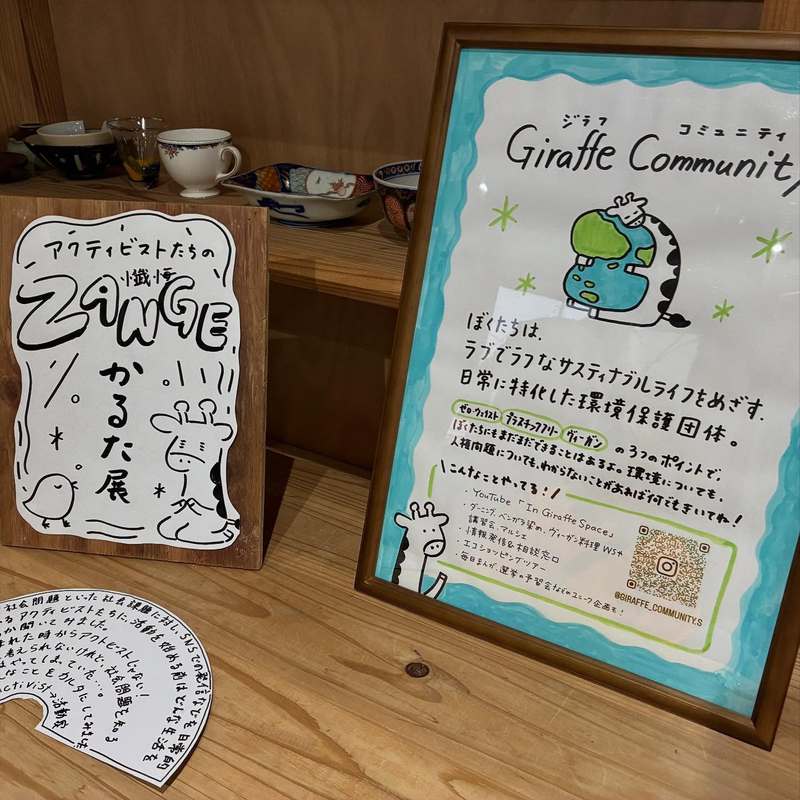 アクティビストたちの
懺悔
ZANGE
かるた展
ジラフ コミュニティ
Giraffe Community
ぼくたちは、
ラブでラフなサスティナブルライフをめざす、
日常に特化した環境保護団体。
ゼロ・ウェイスト プラスチックフリー ヴィーガン の3つのポイントで、
ぼくたちにもまだまだできることはあるよ。環境についても、
人権問題についても、わからないことがあれば何でもきいてね！
\こんなことやってる！/
・YouTube「In Giraffe Space」
・ダーニング、ベンガラ染め、ヴィーガン料理 WSや
講習会、マルシェ
・情報発信&相談窓口
・エコショッピングツアー
・毎日まんが、選挙の予習会などのユニーク企画も！
@GIRAFFE_COMMUNITY.S
社会問題といった社会課題に対し、SNSでの発信などを日常的
るアクティビストたちに、活動を始める前はどんな生活を
か聞いてみました。
れた時からアクトビストじゃない！
考えられないけれど、社会問題を知る
はやってしまっていた…。
なことをカルタにしてみました
activist→活動家